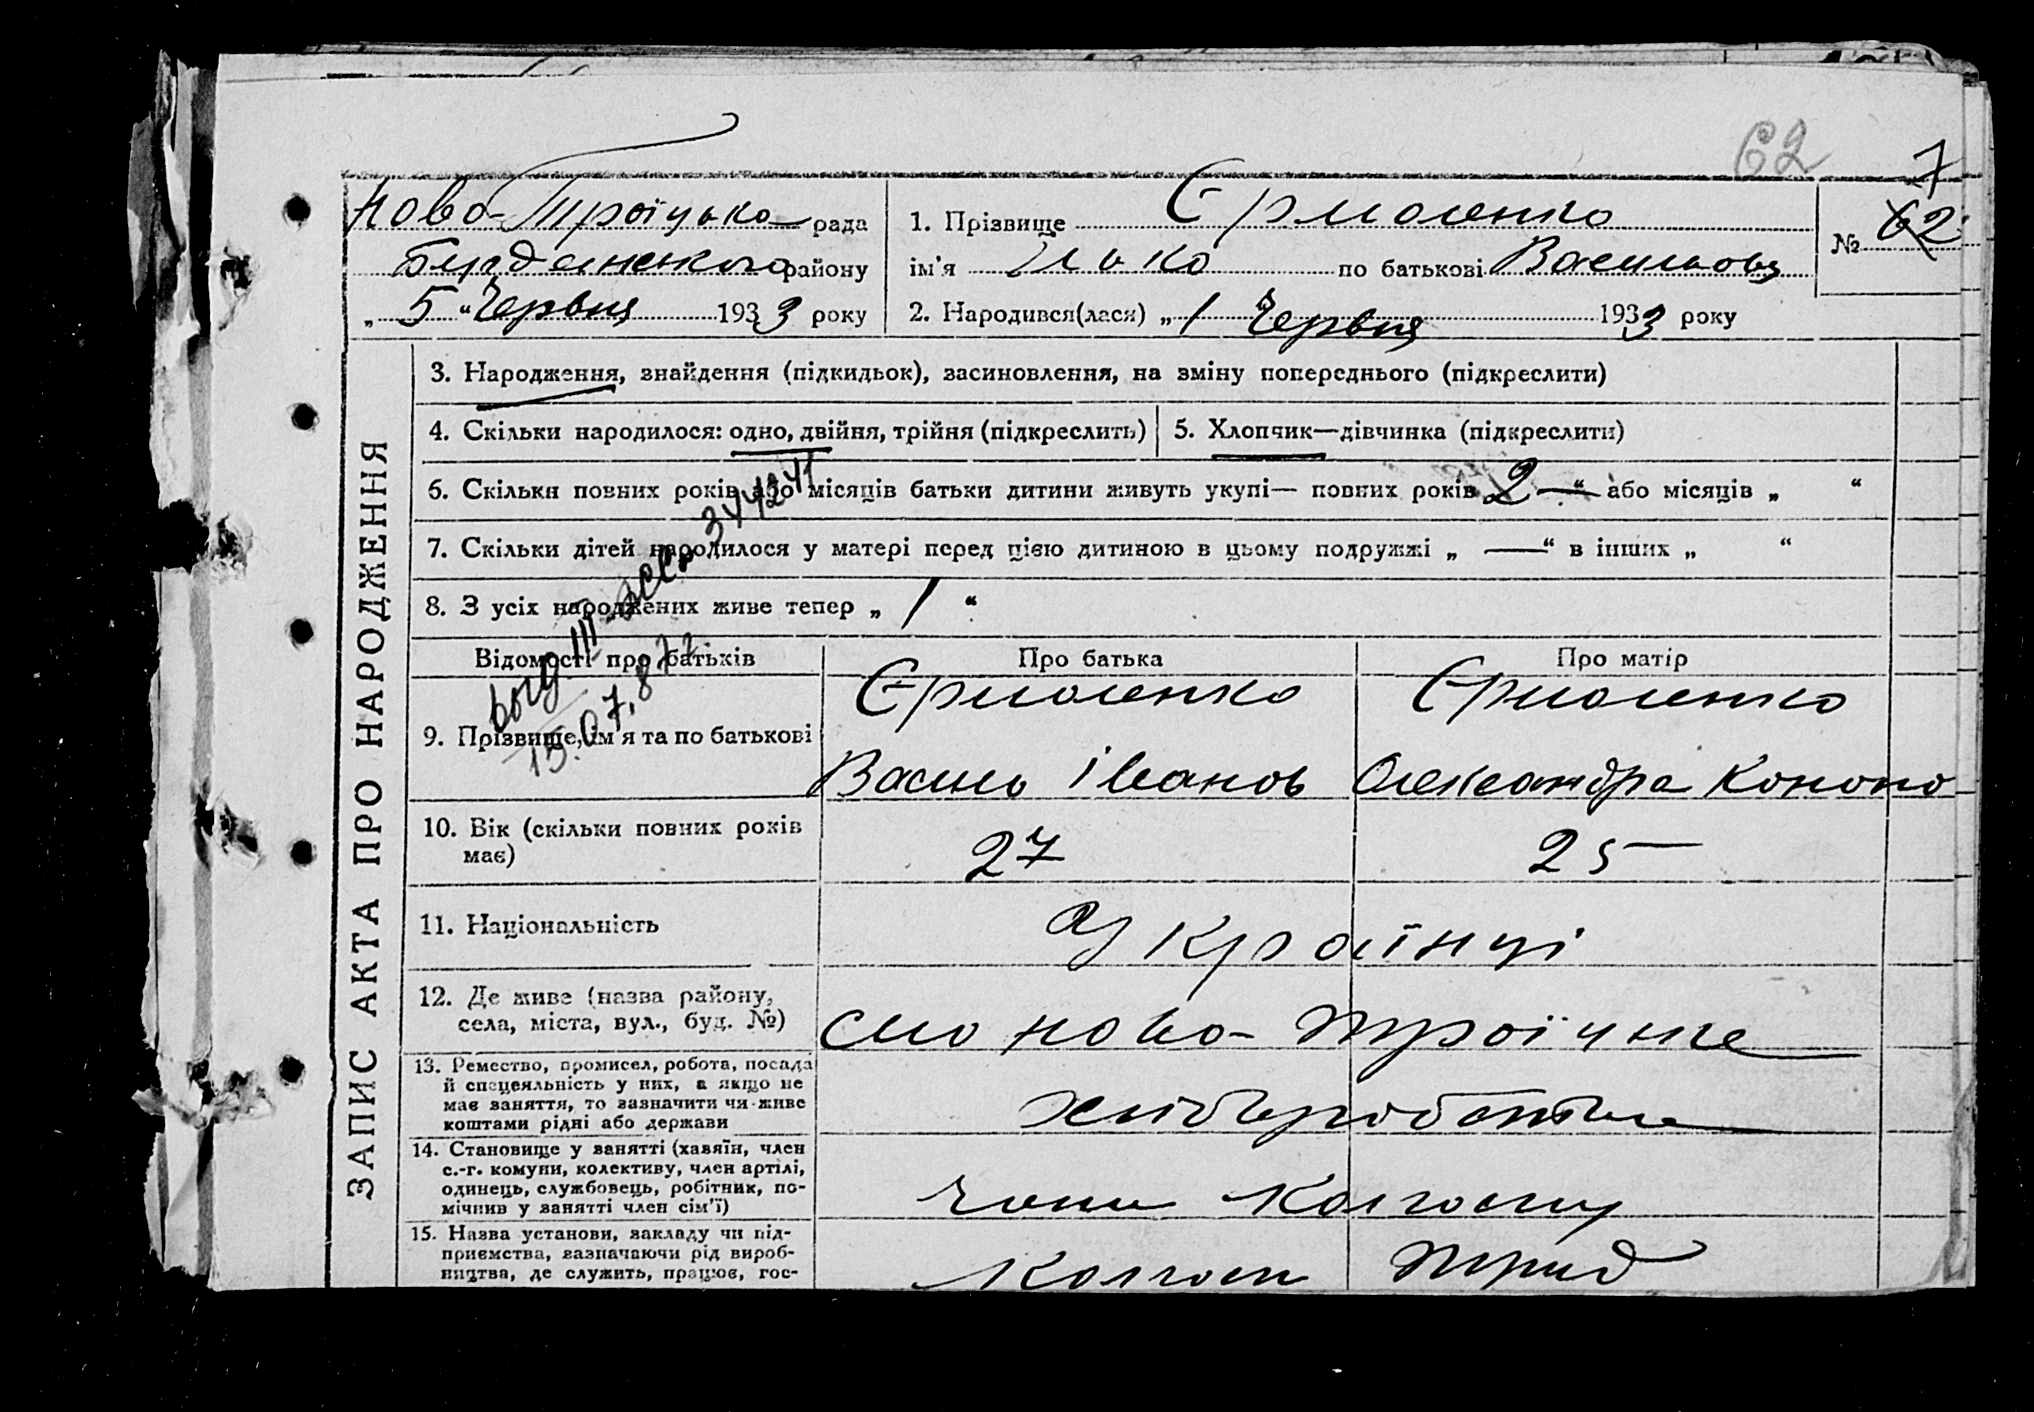 62
7
Ново-Троїцька рада
Бердянського району
„ 5 “ Червня 1933 року
1. Прізвище Єрмоленко
ім'я Ілько по батькові Васильов
2. Народився(лася) „ 1 Червня 1933 року
№ 62
ЗАПИС АКТА ПРО НАРОДЖЕННЯ
3. Народження, знайдення (підкидьок), засиновлення, на зміну попереднього (підкреслити)
4. Скільки народилося: одно, двійня, трійня (підкреслить)
5. Хлопчик—дівчинка (підкреслити)
6. Скільки повних років або місяців батьки дитини живуть укупі— повних років 2 —“ або місяців „ “
7. Скільки дітей народилося у матері перед цією дитиною в цьому подружжі „ — “ в інших „ “
8. З усіх народжених живе тепер „ 1 “
выд. III 344241
15.07.87г.
Відомості про батьків
Про батька
Про матір
9. Прізвище, ім'я та по батькові
Єрмоленко
Василь Іванов
Єрмоленко
Олександра Конono
10. Вік (скільки повних років
має)
27
25
11. Національність
Українці
12. Де живе (назва району,
села, міста, вул., буд. №)
село Ново-Троїцьке
13. Ремество, промисел, робота, посада
й спецеяльність у них, а якщо не
має заняття, то зазначити чи живе
коштами рідні або держави
хліборобство
14. Становище у занятті (хазяїн, член
с.-г. комуни, колективу, член артілі,
одинець, службовець, робітник, по-
мічнив у занятті член сім'ї)
член колгоспу
15. Назва установи, закладу чи під-
приємства, зазначаючи рід вироб-
ництва, де служить, працює, гос-
колгосп